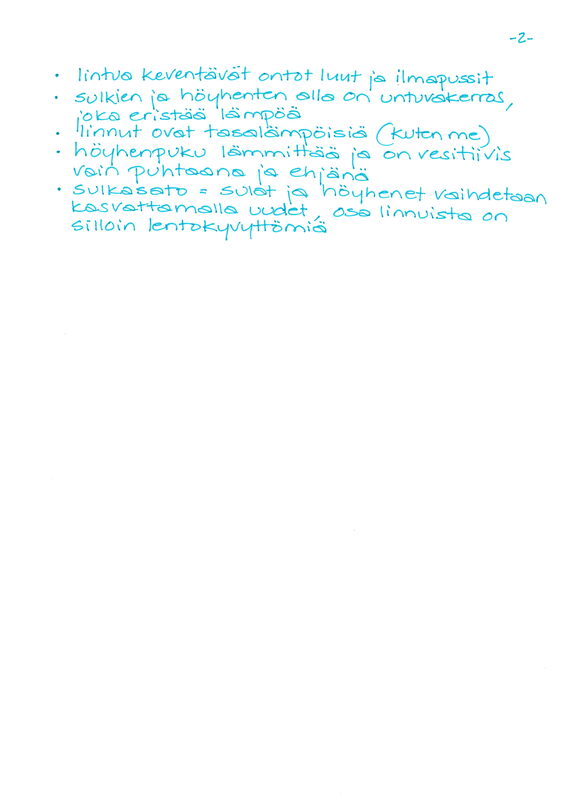 -2-
• lintua keventävät ontot luut ja ilmapussit
• sulkien ja höyhenten alla on untuvakerros,
joka eristää lämpöä
• linnut ovat tasalämpöisiä (kuten me)
• höyhenpuku lämmittää ja on vesitiivis
vain puhtaana ja ehjänä
• sulkasato = sulat ja höyhenet vaihdetaan
kasvattamalla uudet, osa linnuista on
silloin lentokyvyttömiä